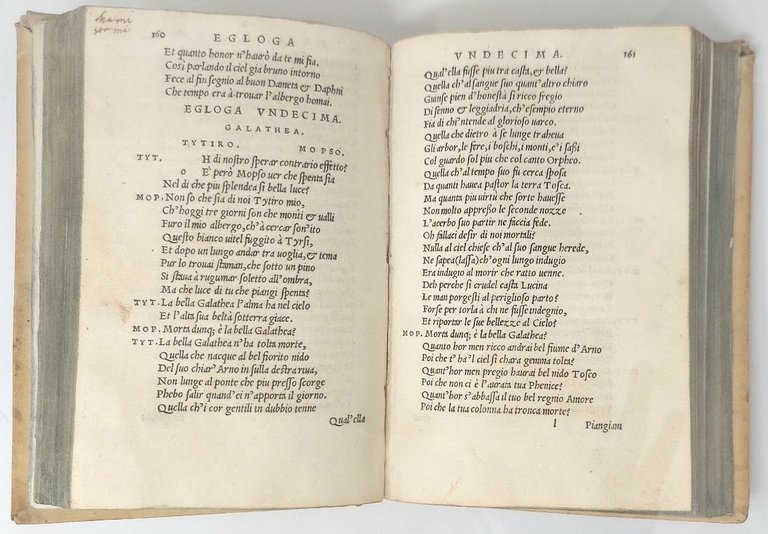 160 EGLOGA
Et quanto honor n'haurò da te mi sia.
Così parlando il ciel gia bruno intorno
Fece al fin segnio al buon Dameta & Daphni
Che tempo era à trouar l'albergo homai.
EGLOGA VNDECIMA.
GALATHEA.
TYTIRO. MOPSO.
TYT. H di nostro sperar contrario effetto?
O E' però Mopso uer che spenta sia
Nel di che piu splendea si bella luce?
MOP. Non so che sia di noi Tytiro mio,
Ch'hoggi tre giorni son che monti & ualli
Furo il mio albergo, ch'à cercar son'ito
Questo bianco uitel fuggito à Tyrsi,
Et dopo un lungo andar tra uoglia, & tema
Pur lo trouai staman, che sotto un pino
Si staua à rugumar soletto all'ombra,
Ma che luce di tu che piangi spenta?
TYT. La bella Galathea l'alma ha nel cielo
Et l'alta sua beltà sotterra giace.
MOP. Morta dunq; è la bella Galathea?
TYT. La bella Galathea n'ha tolta morte,
Quella che nacque al bel fiorito nido
Del suo chiar'Arno in sulla destra riua,
Non lunge al ponte che piu presso scorge
Phebo salir quand'ei n'apporta il giorno.
Quella ch'i cor gentili in dubbio tenne
Qual'ella
VNDECIMA. 161
Qual'ella fusse piu tra casta, & bella?
Quella ch'al sangue suo quant'altro chiaro
Giunse pien d'honestà si ricco fregio
Di senno & leggiadria, ch'esempio eterno
Fia di chi'ntende al glorioso uarco.
Quella che dietro à se lunge traheua
Gli arbor, le fere, i boschi, i monti, e i sassi
Col guardo sol piu che col canto Orpheo.
Quella ch'al tempo suo fu cerca sposa
Da quanti hauea pastor la terra Tosca.
Ma quanta piu uirtù che sorte hauesse
Non molto appresso le seconde nozze
L'acerbo suo partir ne faccia fede.
Oh fallaci desir di noi mortali?
Nulla al ciel chiese ch'al suo sangue herede,
Ne sapea (lassa) ch'ogni lungo indugio
Era indugio al morir che ratto uenne.
Deh perche si crudel casta Lucina
Le man porgesti al periglioso parto?
Forse per torla à chi ne fusse indegnio,
Et riportar le sue bellezze al Cielo?
MOP. Morta dunq; è la bella Galathea?
Quanto hor men ricco andrai bel fiume d'Arno
Poi che t'ha'l ciel si chara gemma tolta?
Quant'hor men pregio haurai bel nido Tosco
Poi che non ci è l'aurata tua Phenice?
Quant'hor s'abbassa il tuo bel regnio Amore
Poi che la tua colonna ha tronca morte?
I Piangiam